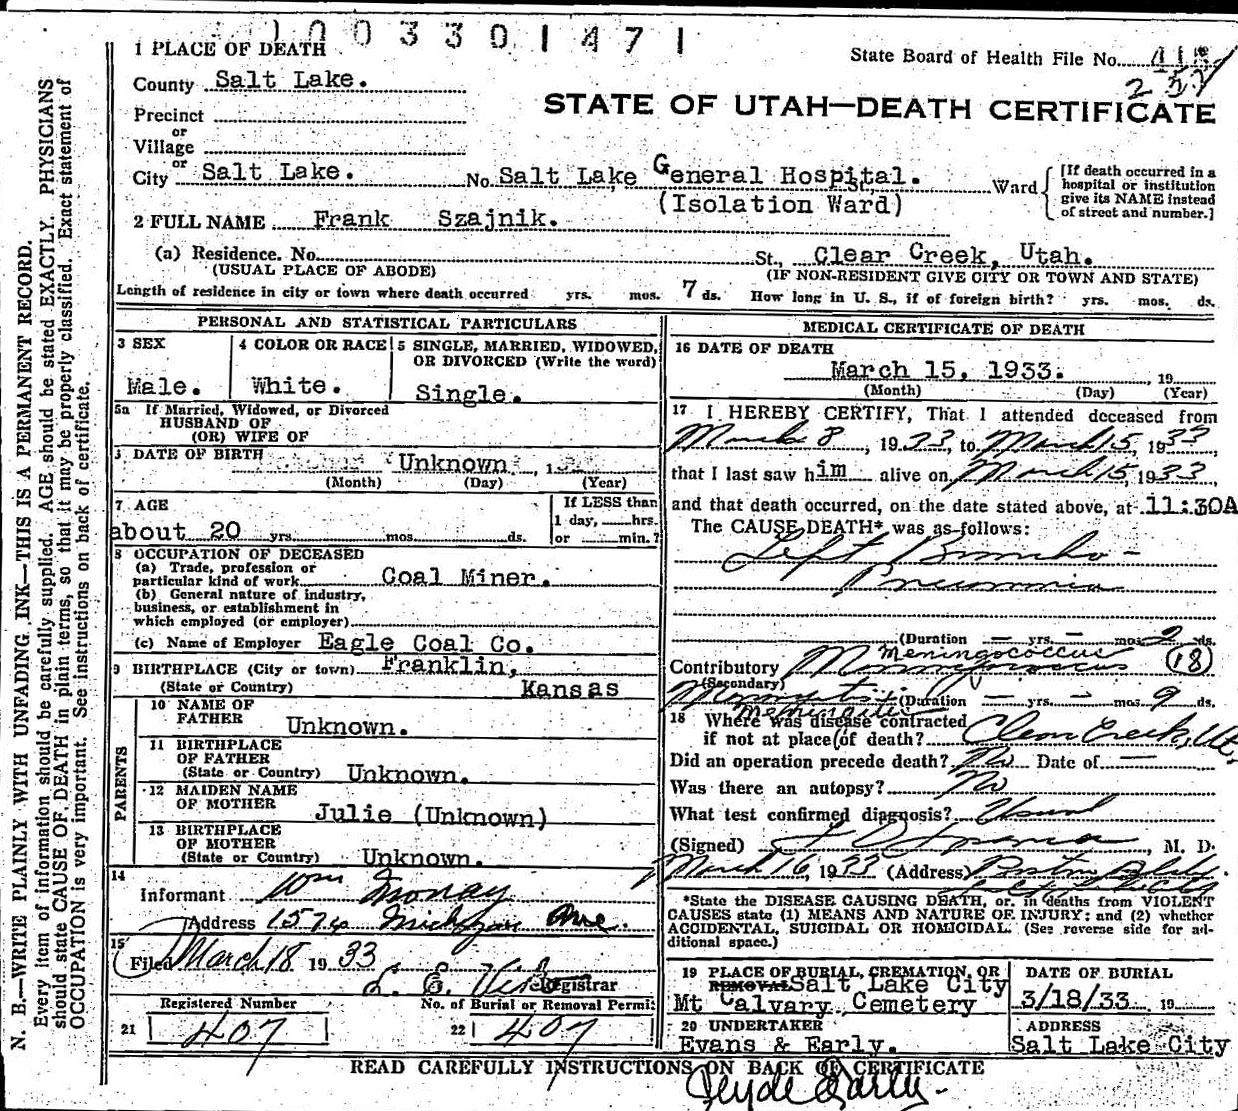 1003301471
1 PLACE OF DEATH
State Board of Health File No.
County Salt Lake.
257
STATE OF UTAH—DEATH CERTIFICATE
Precinct
or
Village
or
City Salt Lake. No. Salt Lake General Hospital. Ward
(Isolation Ward)
[If death occurred in a
hospital or institution
give its NAME instead
of street and number.]
2 FULL NAME Frank Szajnik.
(a) Residence. No. St., Clear Creek, Utah.
(USUAL PLACE OF ABODE) (IF NON-RESIDENT GIVE CITY OR TOWN AND STATE)
Length of residence in city or town where death occurred yrs. mos. 7 ds. How long in U. S., if of foreign birth? yrs. mos. ds.
PERSONAL AND STATISTICAL PARTICULARS
3 SEX
Male.
4 COLOR OR RACE
White.
5 SINGLE, MARRIED, WIDOWED,
OR DIVORCED (Write the word)
Single.
5a If Married, Widowed, or Divorced
HUSBAND OF
(OR) WIFE OF
DATE OF BIRTH Unknown, 1
(Month) (Day) (Year)
7 AGE
about 20 yrs. mos. ds.
If LESS than
1 day, hrs.
or min.?
8 OCCUPATION OF DECEASED
(a) Trade, profession or
particular kind of work Coal Miner.
(b) General nature of industry,
business, or establishment in
which employed (or employer)
(c) Name of Employer Eagle Coal Co.
9 BIRTHPLACE (City or town) Franklin,
(State or Country) Kansas
PARENTS
10 NAME OF
FATHER Unknown.
11 BIRTHPLACE
OF FATHER
(State or Country) Unknown.
12 MAIDEN NAME
OF MOTHER Julie (Unknown)
13 BIRTHPLACE
OF MOTHER
(State or Country) Unknown.
14
Informant Wm Monay
Address 1576 Michigan Ave.
15
Filed March 18 1933
Registrar
Registered Number
21 407
No. of Burial or Removal Permit
22 407
MEDICAL CERTIFICATE OF DEATH
16 DATE OF DEATH
March 15, 1933. , 19
(Month) (Day) (Year)
17 I HEREBY CERTIFY, That I attended deceased from
March 8, 1933, to March 15, 1933
that I last saw him alive on March 15, 1933,
and that death occurred, on the date stated above, at 11:30A
The CAUSE DEATH* was as follows:
Left Broncho-
Pneumonia
(Duration — yrs. — mos. 2 ds.
Meningococcus
Contributory Meningococcus (18)
(Secondary)
Meningitis (Duration — yrs. — mos. 9 ds.
Meningitis
18 Where was disease contracted
if not at place of death? Clear Creek, Ut.
Did an operation precede death? No Date of —
Was there an autopsy? No
What test confirmed diagnosis? Usual
(Signed) , M. D.
March 16, 1933 (Address) Boston Bldg.
Salt Lake City
*State the DISEASE CAUSING DEATH, or, in deaths from VIOLENT
CAUSES state (1) MEANS AND NATURE OF INJURY; and (2) whether
ACCIDENTAL, SUICIDAL OR HOMICIDAL. (See reverse side for ad-
ditional space.)
19 PLACE OF BURIAL, CREMATION, OR
REMOVAL Salt Lake City
Mt Calvary Cemetery
DATE OF BURIAL
3/18/33 19
20 UNDERTAKER
Evans & Early.
ADDRESS
Salt Lake City
READ CAREFULLY INSTRUCTIONS ON BACK OF CERTIFICATE
Clyde Early.
N. B.—WRITE PLAINLY WITH UNFADING INK—THIS IS A PERMANENT RECORD.
Every item of information should be carefully supplied. AGE should be stated EXACTLY. PHYSICIANS
should state CAUSE OF DEATH in plain terms, so that it may be properly classified. Exact statement of
OCCUPATION is very important. See instructions on back of certificate.